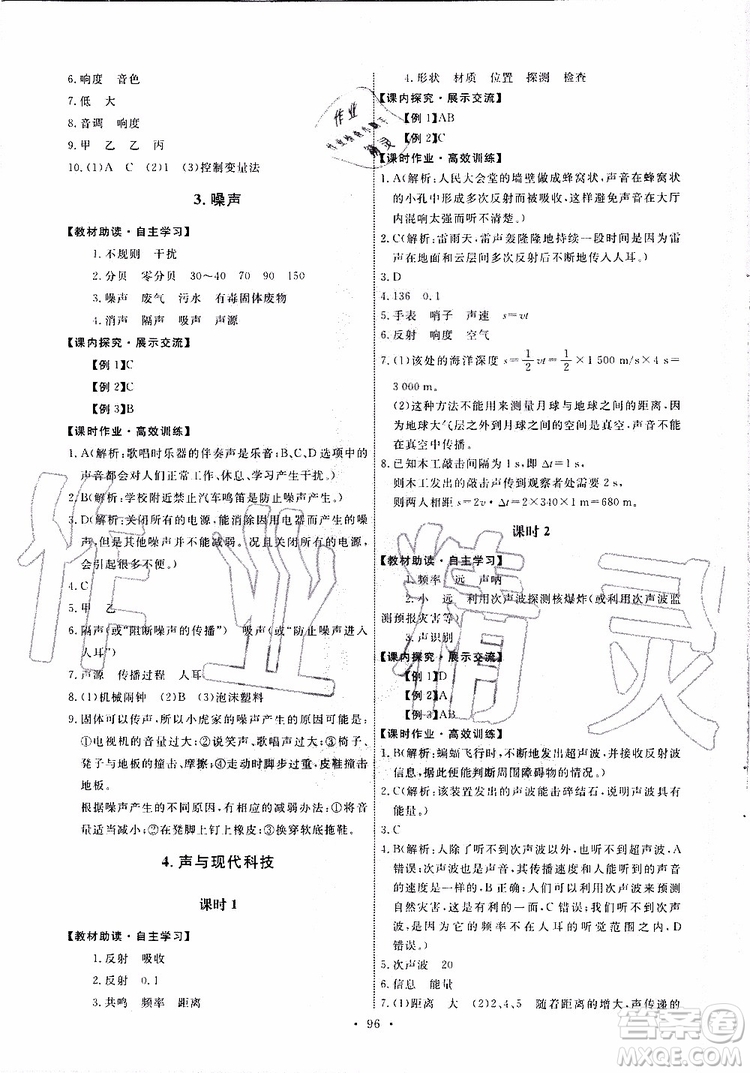 6. 响度　音色
7. 低　大
8. 音调　响度
9. 甲　乙　乙　丙
10. (1)A　(2)1　(3)控制变量法
3. 噪声
【教材助读·自主学习】
1. 不规则　干扰
2. 分贝　零分贝　30～40　70　90　150
3. 噪声　废气　污水　有毒固体废物
4. 消声　隔声　吸声　声源
【课内探究·展示交流】
【例 1】C
【例 2】C
【例 3】B
【课时作业·高效训练】
1. A(解析：歌唱时乐器的伴奏声是乐音；B、C、D选项中的
声音都会对人们正常工作、休息、学习产生干扰。)
2. B(解析：学校附近禁止汽车鸣笛是防止噪声产生。)
3. D(解析：关闭所有的电源，能消除因用电器而产生的噪
声，但是其他噪声并不能减弱。况且关闭所有的电源，
会引起很多不便。)
4. C
5. 甲　乙
6. 隔声(或“阻断噪声的传播”)　吸声(或“防止噪声进入
人耳”)
7. 声源　传播过程　人耳
8. (1)机械闹钟　(2)B　(3)泡沫塑料
9. 固体可以传声，所以小虎家的噪声产生的原因可能是：
①电视机的音量过大；②说笑声、歌唱声过大；③椅子、
凳子与地板的撞击、摩擦；④走动时脚步过重，鞋撞击
地板。
根据噪声产生的不同原因，相应的减弱办法有：①将音
量适当放小；②在凳脚上钉上橡皮；③换穿软底拖鞋。
4. 声与现代科技
课时 1
【教材助读·自主学习】
1. 反射　吸收
2. 反射　0.1
3. 共鸣　频率　距离
4. 形状　材质　位置　探测　检查
【课内探究·展示交流】
【例 1】AB
【例 2】C
【课时作业·高效训练】
1. A(解析：人民大会堂的墙壁做成蜂窝状，声音在蜂窝状
的小孔中形成多次反射而被吸收，避免声音在大厅
内混响太大而听不清楚。)
2. C(解析：雷雨天，雷声轰隆隆地持续一段时间是由于雷
声在地面和云层间多次反射后进入人耳。)
3. D
4. 136　0.1
5. 手表　哨子　声速　s=vt
6. 反射　响度　空气
7. (1)该处的海洋深度 s=1/2vt=1/2×1 500 m/s×4 s=
3 000 m。
(2)这种方法不能用来测量月球与地球之间的距离，因
为地球大气层之外与月球之间的空间是真空，声音不能
在真空中传播。
8. 已知木工敲击间隔为 1 s，即 Δt=1 s，
则木工发出的敲击声传到观察者处所需时间为 2 s。
则两人相距 s=2v·Δt=2×340×1 m=680 m。
课时 2
【教材助读·自主学习】
1. 频率　远　声呐
2. 小　远　利用次声波探测核爆炸(或利用次声波监
测预报灾害等)
3. 声识别
【课内探究·展示交流】
【例 1】D
【例 2】A
【例 3】AB
【课时作业·高效训练】
1. B(解析：蝙蝠飞行时，不断发出超声波，依靠反射获取
信息，能使其判断周围障碍物的情况。)
2. B(解析：该装置发出的超声波能击碎结石，说明声具有
能量。)
3. C
4. B(解析：人除了听不到次声波以外，也听不到超声波，A
错误；次声波的传播速度与人能听到的各种频率的声音
的速度是一样的，B 正确；人们可以利用次声波来预测
自然灾害，这是有利的一面，C 错误；我们听不到次声
波，是因为它的频率不在人耳的听觉频率范围内，D
错误。)
5. 次声波　20
6. 信息　能量
7. (1)距离　大　(2)2、4、5　随着距离的增大，声传递的
• 96 •
作业
精灵
作业精灵
答案圈
MXQE.COM